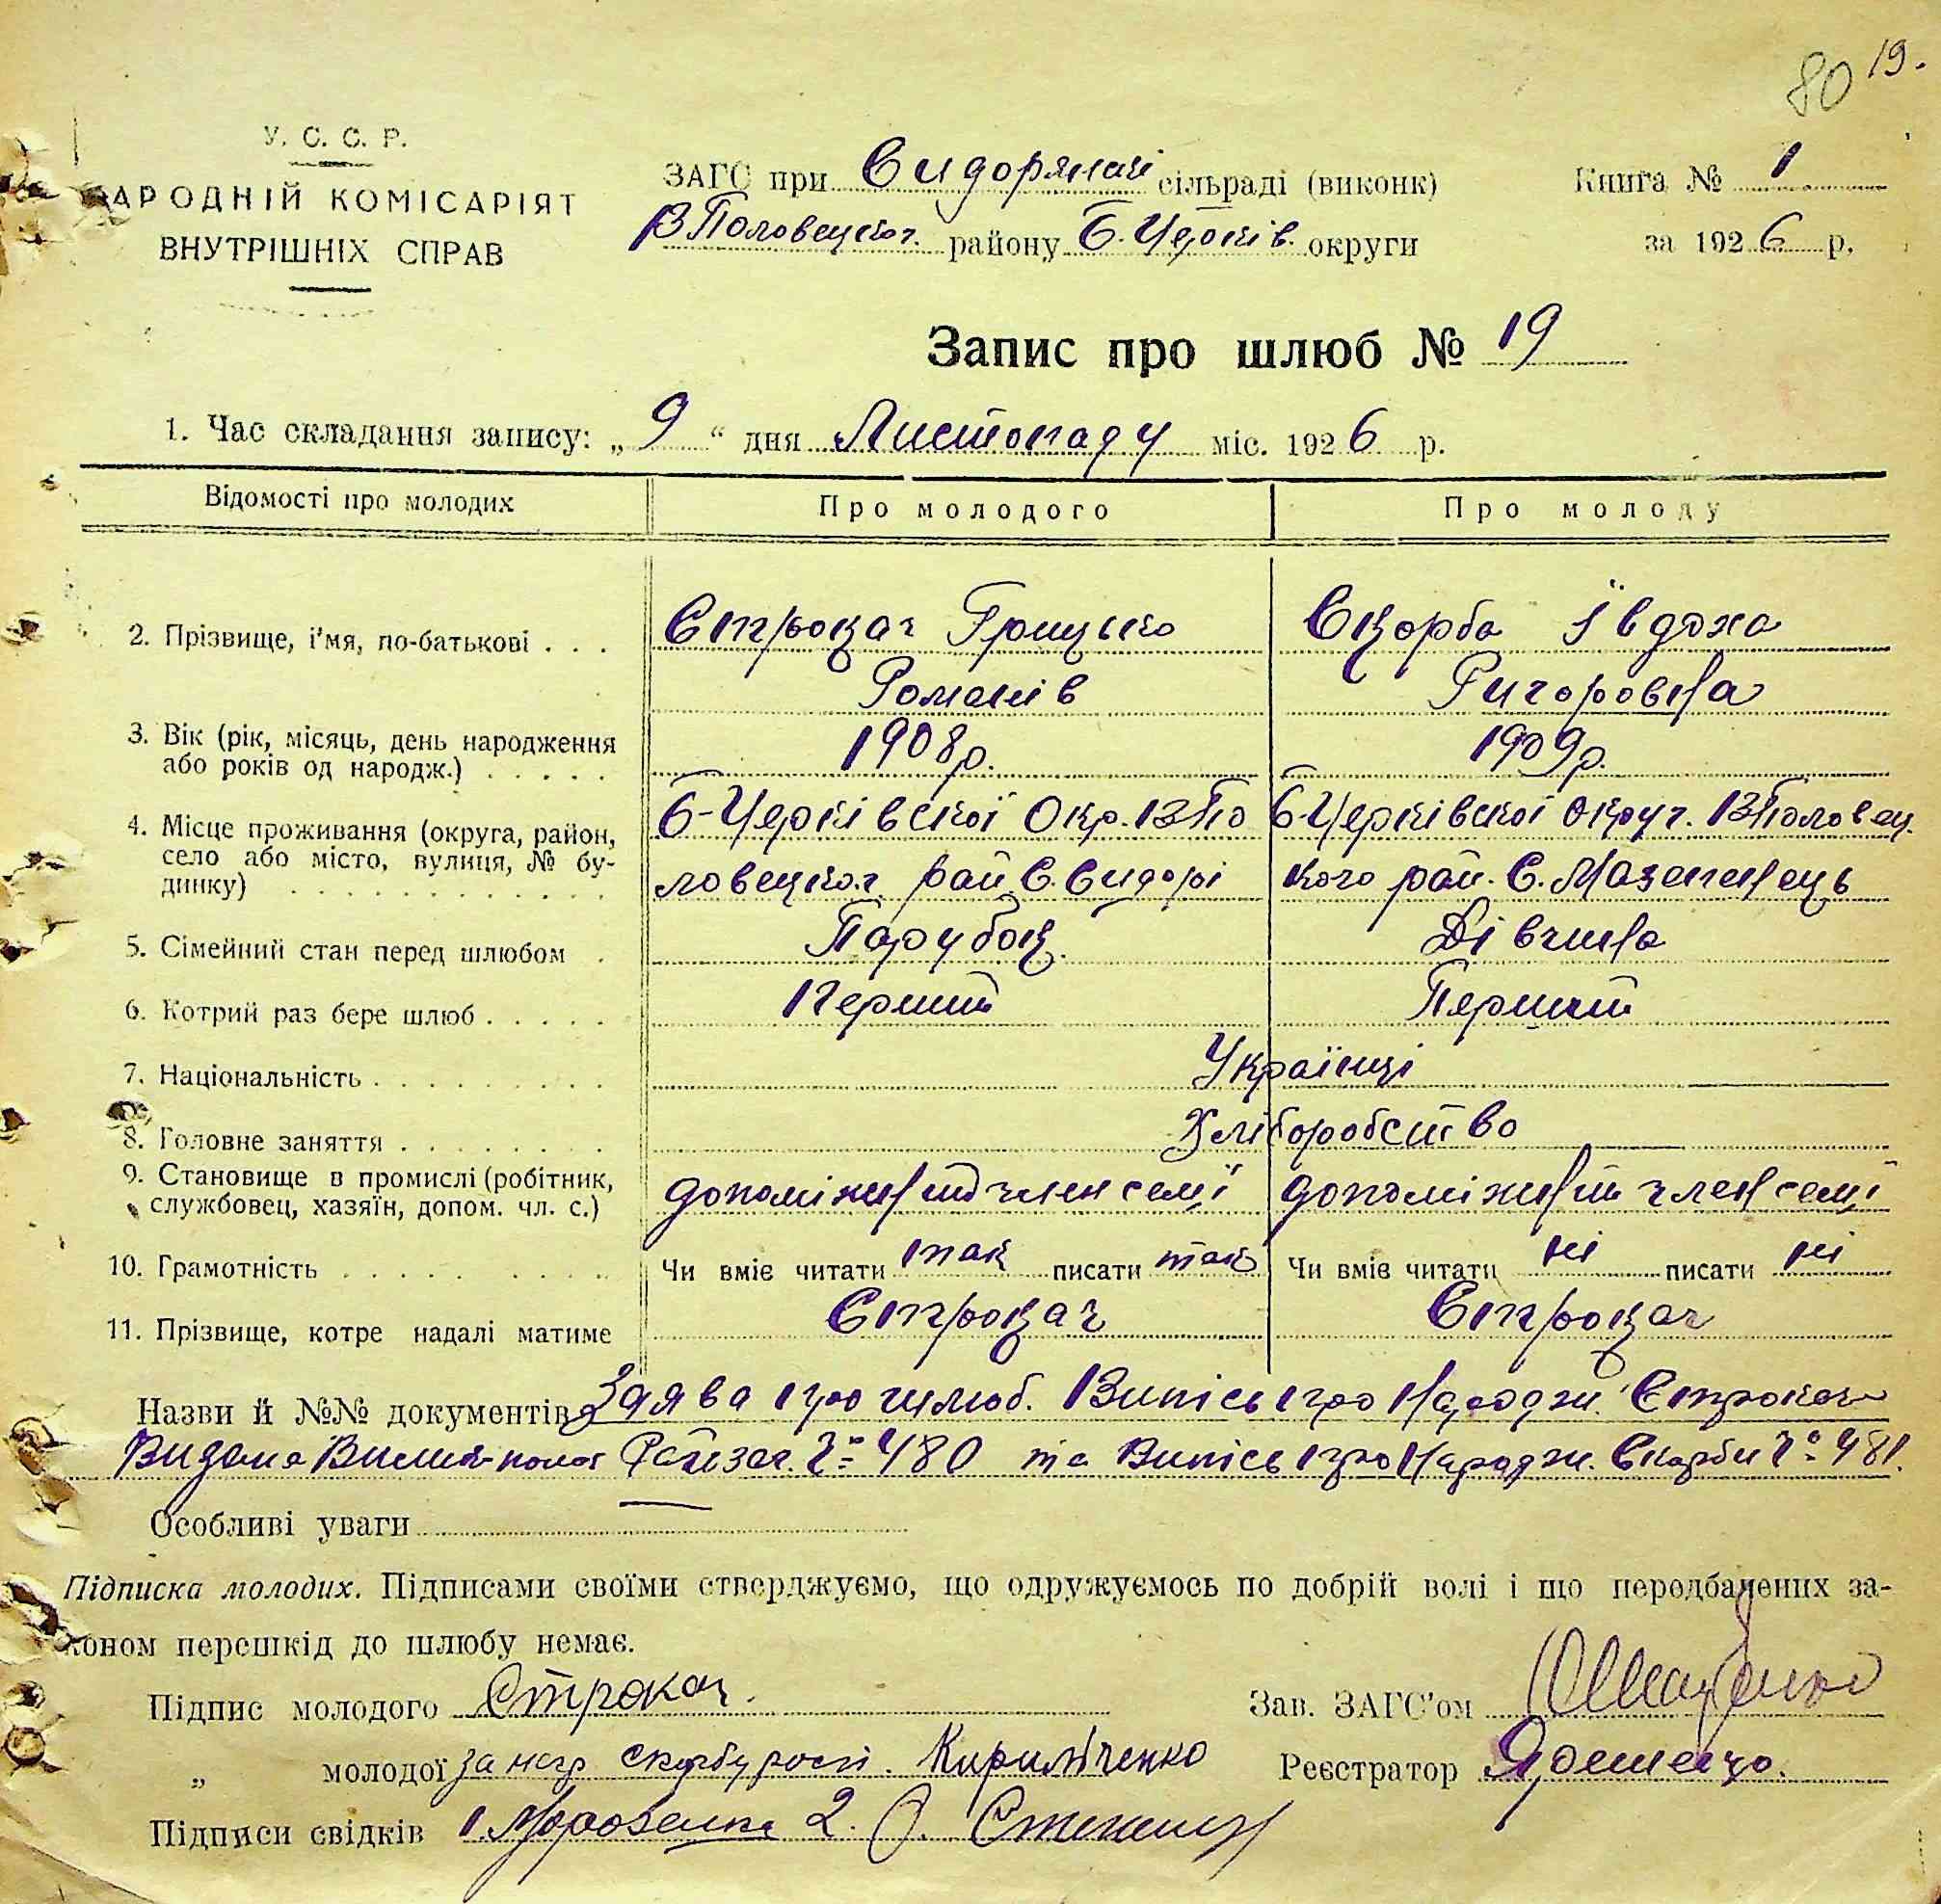 80 19.
У. С. С. Р.
АРОДНІЙ КОМІСАРІЯТ
ВНУТРІШНІХ СПРАВ
ЗАГС при Сидорянській сільраді (виконк)
В Половецког. району Б. Церків. округи
Книга № 1
за 1926 р.
Запис про шлюб № 19
1. Час складання запису: „ 9 “ дня Листопаду міс. 1926 р.
Відомості про молодих Про молодого Про молоду
2. Прізвище, і'мя, по-батькові . . . Строкач Грицько Скорба Івдоха
Романів Григоровна
3. Вік (рік, місяць, день народження 1908р. 1909р.
або років од народж.) . . . . .
4. Місце проживання (округа, район, Б-Церківскої Окр. В По Б-Церківскої Округ. В Половец.
село або місто, вулиця, № бу- ловецког рай. С. Сидорі кого рай. С. Мазепинець
динку) . . . . . . . . . . .
5. Сімейний стан перед шлюбом . Парубок. Дівчина
6. Котрий раз бере шлюб . . . . . Перший Перший
7. Національність . . . . . . . . . Українці
8. Головне заняття . . . . . . . . Хліборобство
9. Становище в промислі (робітник, допоміжний член семї допоміжний член семї
службовец, хазяїн, допом. чл. с.)
10. Грамотність . . . . . . . . . Чи вміє читати так писати так Чи вміє читати ні писати ні
11. Прізвище, котре надалі матиме Строкач Строкач
Назви й №№ документів Заява про шлюб. Випісь про Народж. Строкач
Видана Рай загс. №480 та Випісь про Народж. Скорби №481.
Особливі уваги
Підписка молодих. Підписами своїми стверджуємо, що одружуємось по добрій волі і що передбачених за-
коном перешкід до шлюбу немає.
Підпис молодого Строкач. Зав. ЗАГС'ом
„ молодої за негр скорбу росп. Кириліченко Реєстратор
Підписи свідків 1. Морозенко 2.